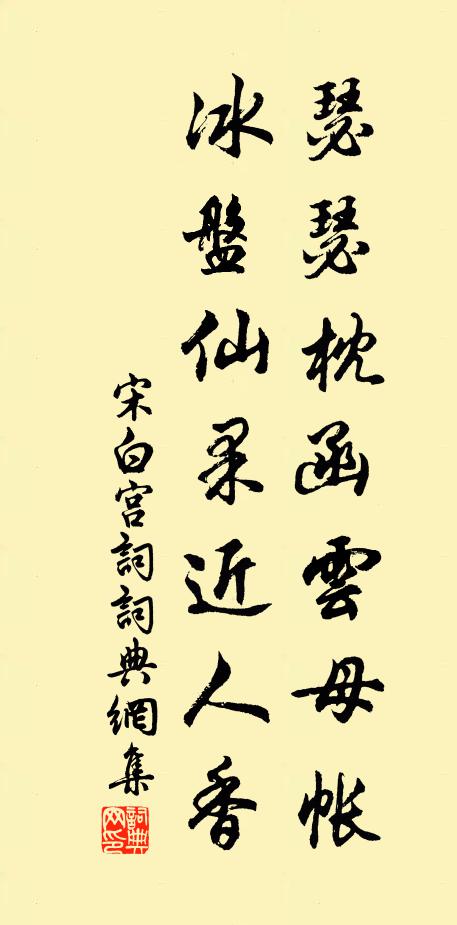 瑟瑟枕函雲母帳
冰盤仙果近人香
宋白宮詞詞典網集
詞典網印